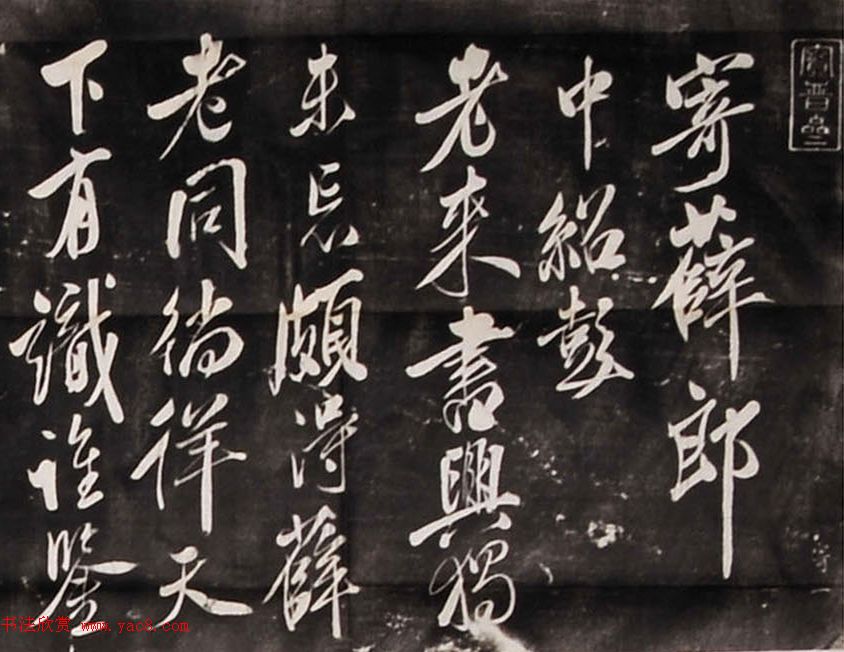 寄薛郎
中紹彭
老来書興獨
未忘頗得薛
老同徜徉天
下有識誰鑒
寶晉齋二
书法欣赏 www.yac8.com